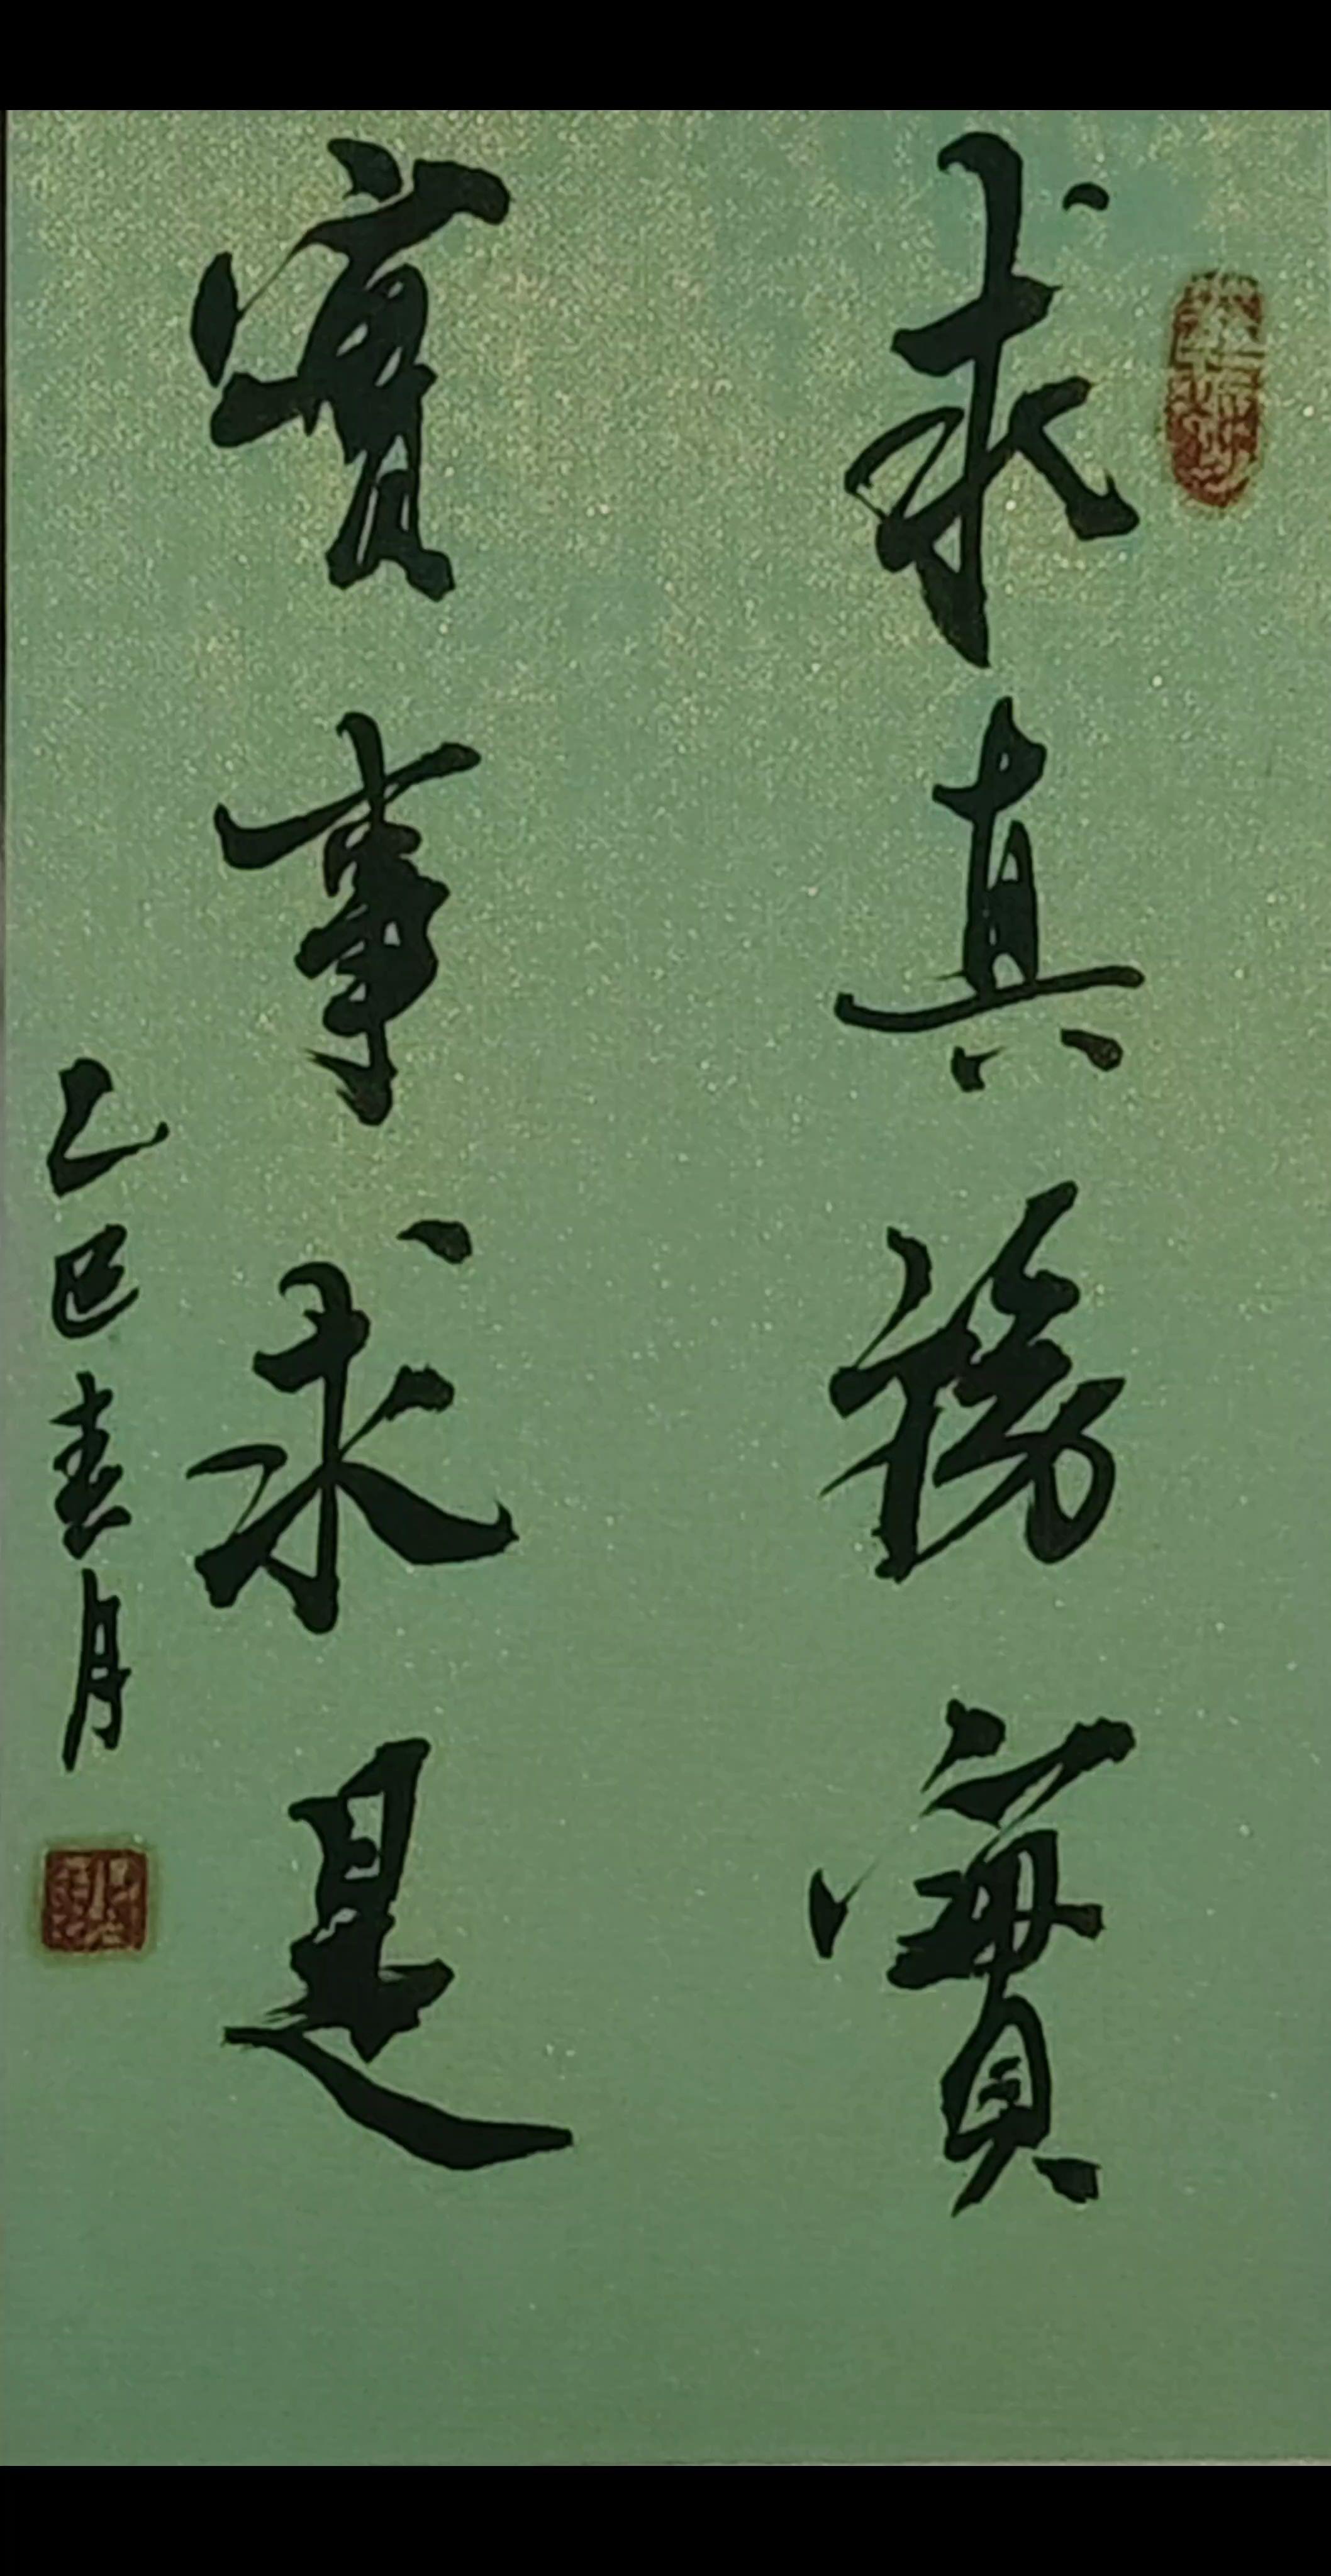 求真務實
實事求是
乙巳春月